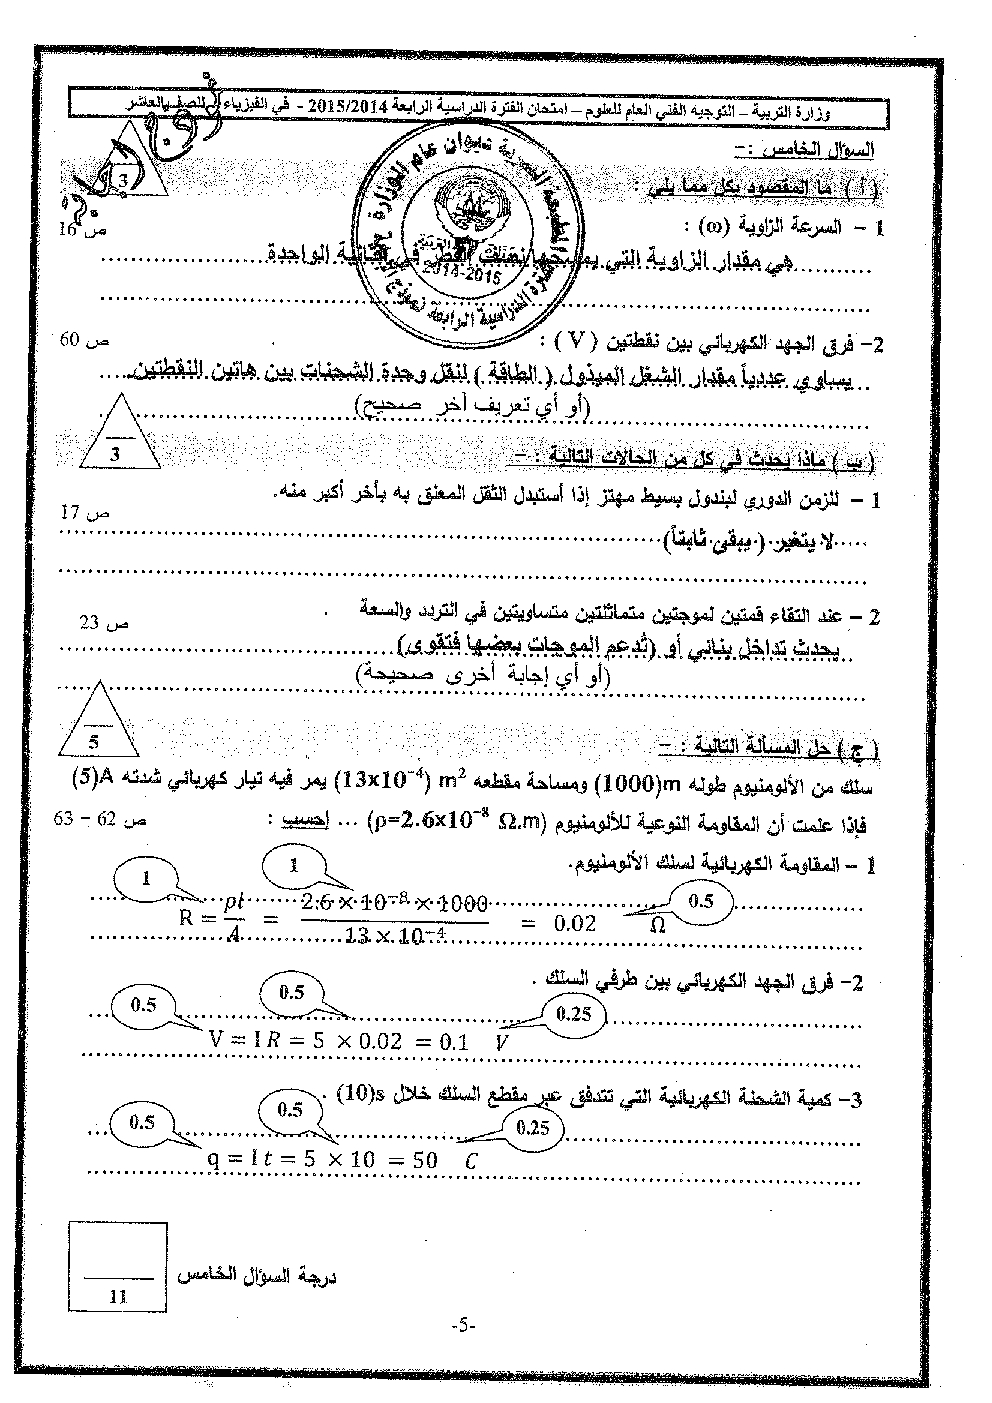 وزارة التربية – التوجيه الفني العام للعلوم – امتحان الفترة الدراسية الرابعة 2015/2014 - في الفيزياء للصف العاشر
السؤال الخامس :-
( أ ) ما المقصود بكل مما يلي :
3
1 – السرعة الزاوية (ω) :
ص 16
هي مقدار الزاوية التي يمسحها نصف القطر في الثانية الواحدة
2014-2015
2– فرق الجهد الكهربائي بين نقطتين ( V ) :
ص 60
يساوي عددياً مقدار الشغل المبذول ( الطاقة ) لنقل وحدة الشحنات بين هاتين النقطتين
(أو أي تعريف آخر صحيح)
( ب ) ماذا يحدث في كل من الحالات التالية : –
3
1 – للزمن الدوري لبندول بسيط مهتز إذا أستبدل الثقل المعلق به بأخر أكبر منه.
ص 17
لا يتغير ( يبقى ثابتاً)
2 – عند التقاء قمتين لموجتين متماثلتين متساويتين في التردد والسعة .
ص 23
يحدث تداخل بنائي أو (تُدعم الموجات بعضها فتقوى)
(أو أي إجابة أخرى صحيحة)
( ج ) حل المسألة التالية : –
5
سلك من الألومنيوم طوله m(1000) ومساحة مقطعه m² (13x10⁻⁴) يمر فيه تيار كهربائي شدته A(5)
فإذا علمت أن المقاومة النوعية للألومنيوم (ρ=2.6x10⁻⁸ Ω.m) ... إحسب :
ص 62 – 63
1 – المقاومة الكهربائية لسلك الألومنيوم.
1 1 0.5
R = ρl/A = 2.6 × 10⁻⁸ × 1000 / 13 × 10⁻⁴ = 0.02 Ω
2– فرق الجهد الكهربائي بين طرفي السلك .
0.5 0.5 0.25
V = I R = 5 × 0.02 = 0.1 V
3– كمية الشحنة الكهربائية التي تتدفق عبر مقطع السلك خلال s(10) .
0.5 0.5 0.25
q = I t = 5 × 10 = 50 C
درجة السؤال الخامس
11
-5-